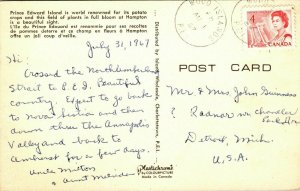 Prince Edward Island is world renowned for its potato
crops and this field of plants in full bloom at Hampton
is a beautiful sight.
L'île du Prince Edward est renommée pour ses recoltes
de pommes deterre et ce champ en fleurs à Hampton
offre un joli coup d'oeil.
July 31, 1967
Hi
Crossed the Northumberland
Strait to P.E.I. Beautiful
country. Expect to go back
to Nova Scotia and then
down thru the Annapolis
Valley and back to
Amherst for a few days.
Uncle Milton
& Aunt
Plastichrome
by COLOURPICTURE
Made in Canada
CANADA
POST CARD
Mr & Mrs John
Chandler
Detroit, Mich.
U.S.A.